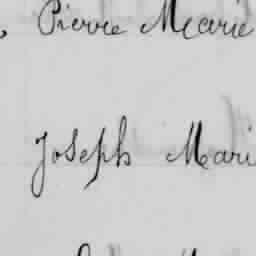 Pierre Marie
Joseph Mari